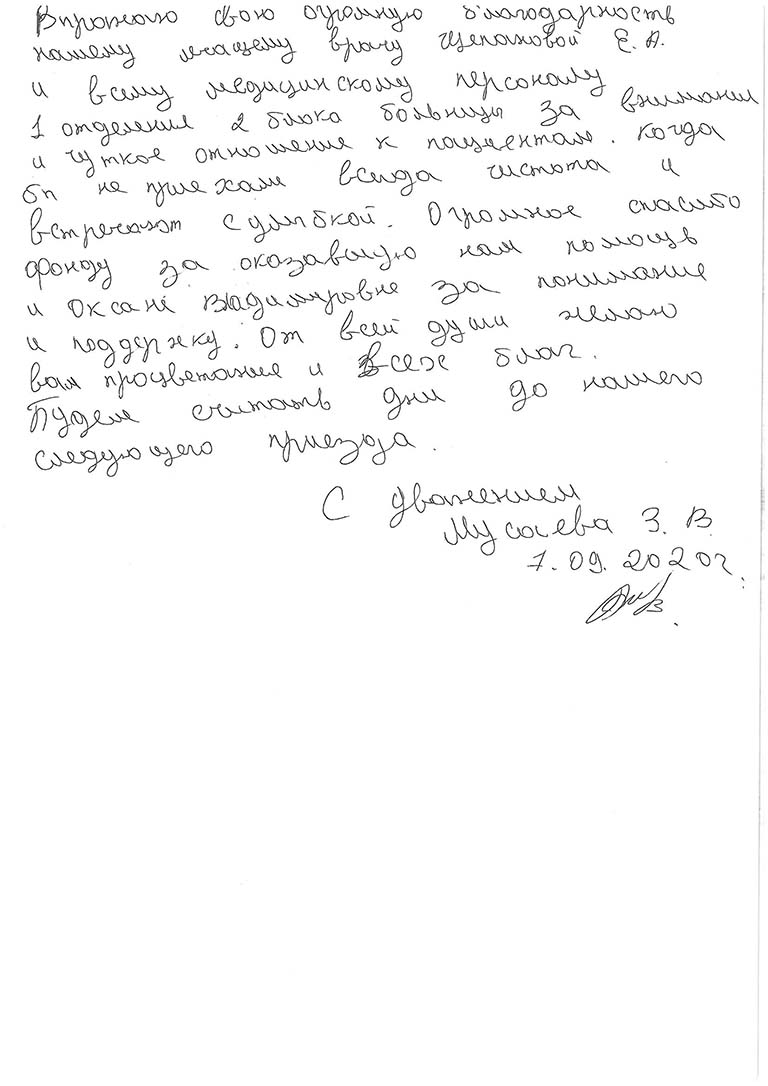 Выражаю свою огромную благодарность
нашему лечащему врачу Щепановой Е. А.
и всему медицинскому персоналу
1 отделения 2 блока больницы за внимание
и чуткое отношение к пациентам. Когда
бы не приехали всегда чистота и
встречают с улыбкой. Огромное спасибо
фонду за оказавшую нам помощь
и Оксане Владимировне за понимание
и поддержку. От всей души желаю
вам процветания и всех благ.
Будем считать дни до нашего
следующего приезда.
С уважением
Мусаева З. В.
7.09.2020г.